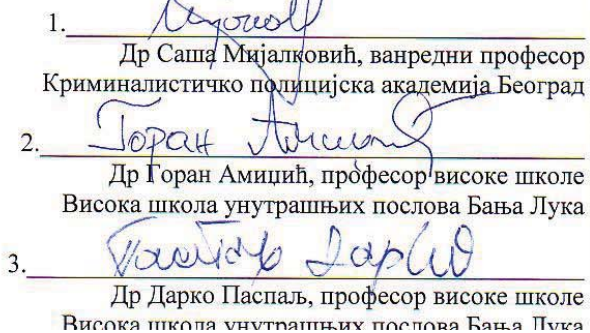 1.
Др Саша Мијалковић, ванредни професор
Криминалистичко полицијска академија Београд
2. Горан Амиџић
Др Горан Амиџић, професор високе школе
Висока школа унутрашњих послова Бања Лука
3. Паспаљ Дарко
Др Дарко Паспаљ, професор високе школе
Висока школа унутрашњих послова Бања Лука